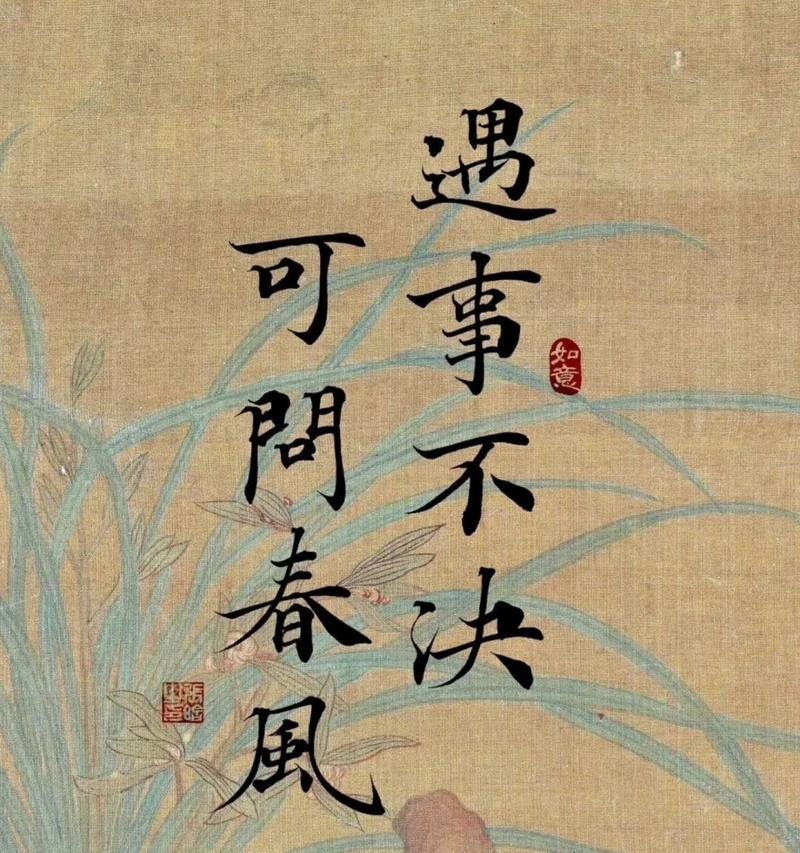 遇事不決
可問春風
如意